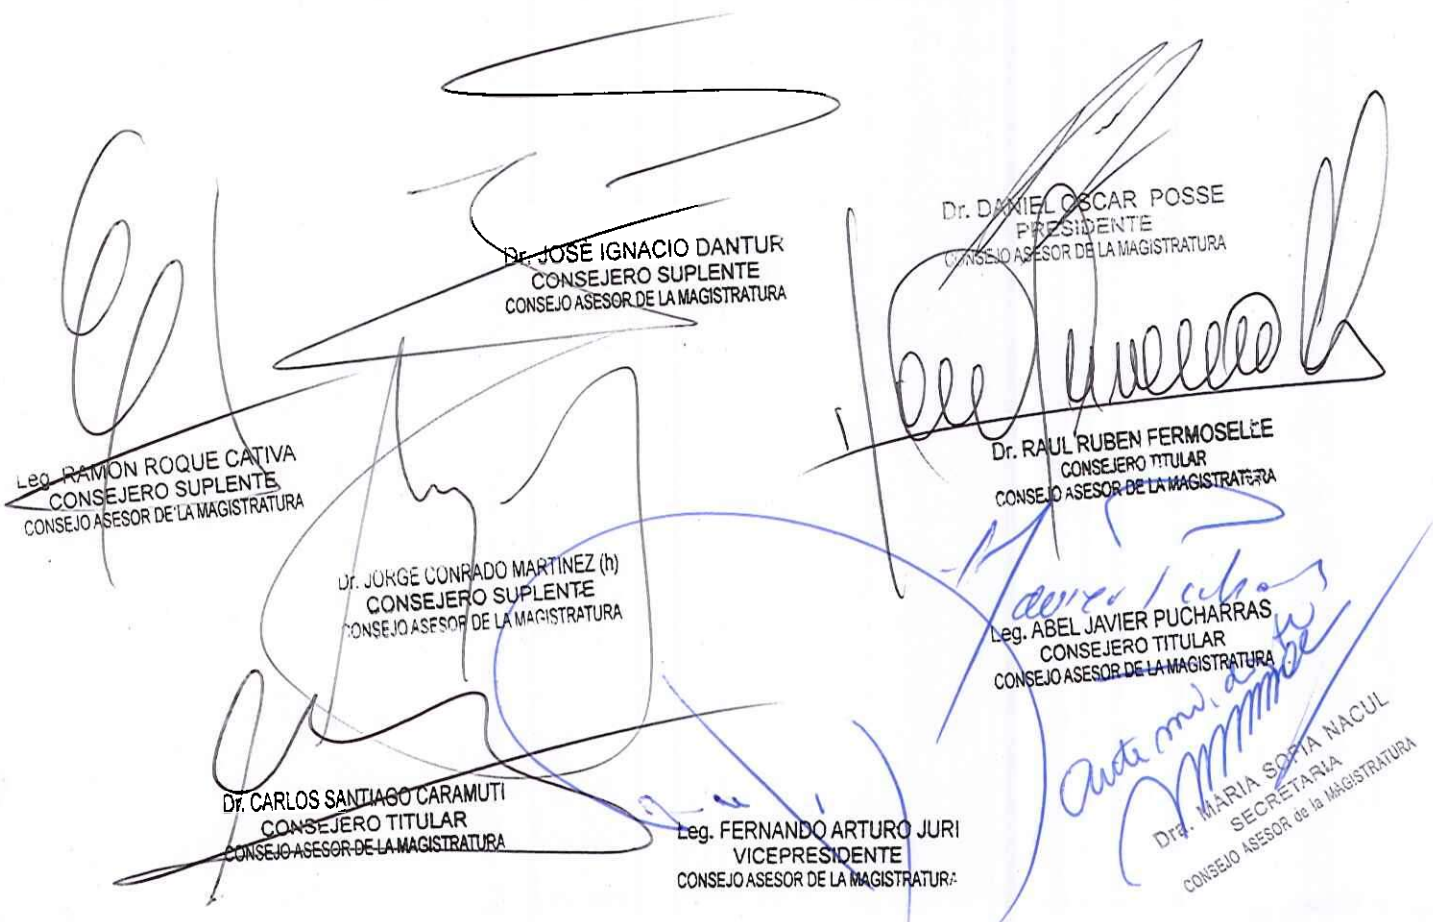 Dr. JOSÉ IGNACIO DANTUR
CONSEJERO SUPLENTE
CONSEJO ASESOR DE LA MAGISTRATURA
Dr. DANIEL OSCAR POSSE
PRESIDENTE
CONSEJO ASESOR DE LA MAGISTRATURA
Leg. RAMON ROQUE CATIVA
CONSEJERO SUPLENTE
CONSEJO ASESOR DE LA MAGISTRATURA
Dr. RAUL RUBEN FERMOSELLE
CONSEJERO TITULAR
CONSEJO ASESOR DE LA MAGISTRATURA
Dr. JORGE CONRADO MARTINEZ (h)
CONSEJERO SUPLENTE
CONSEJO ASESOR DE LA MAGISTRATURA
Leg. ABEL JAVIER PUCHARRAS
CONSEJERO TITULAR
CONSEJO ASESOR DE LA MAGISTRATURA
Dr. CARLOS SANTIAGO CARAMUTI
CONSEJERO TITULAR
CONSEJO ASESOR DE LA MAGISTRATURA
Leg. FERNANDO ARTURO JURI
VICEPRESIDENTE
CONSEJO ASESOR DE LA MAGISTRATURA
Ante mi, doy fe
Dra. MARIA SOFIA NACUL
SECRETARIA
CONSEJO ASESOR de la MAGISTRATURA